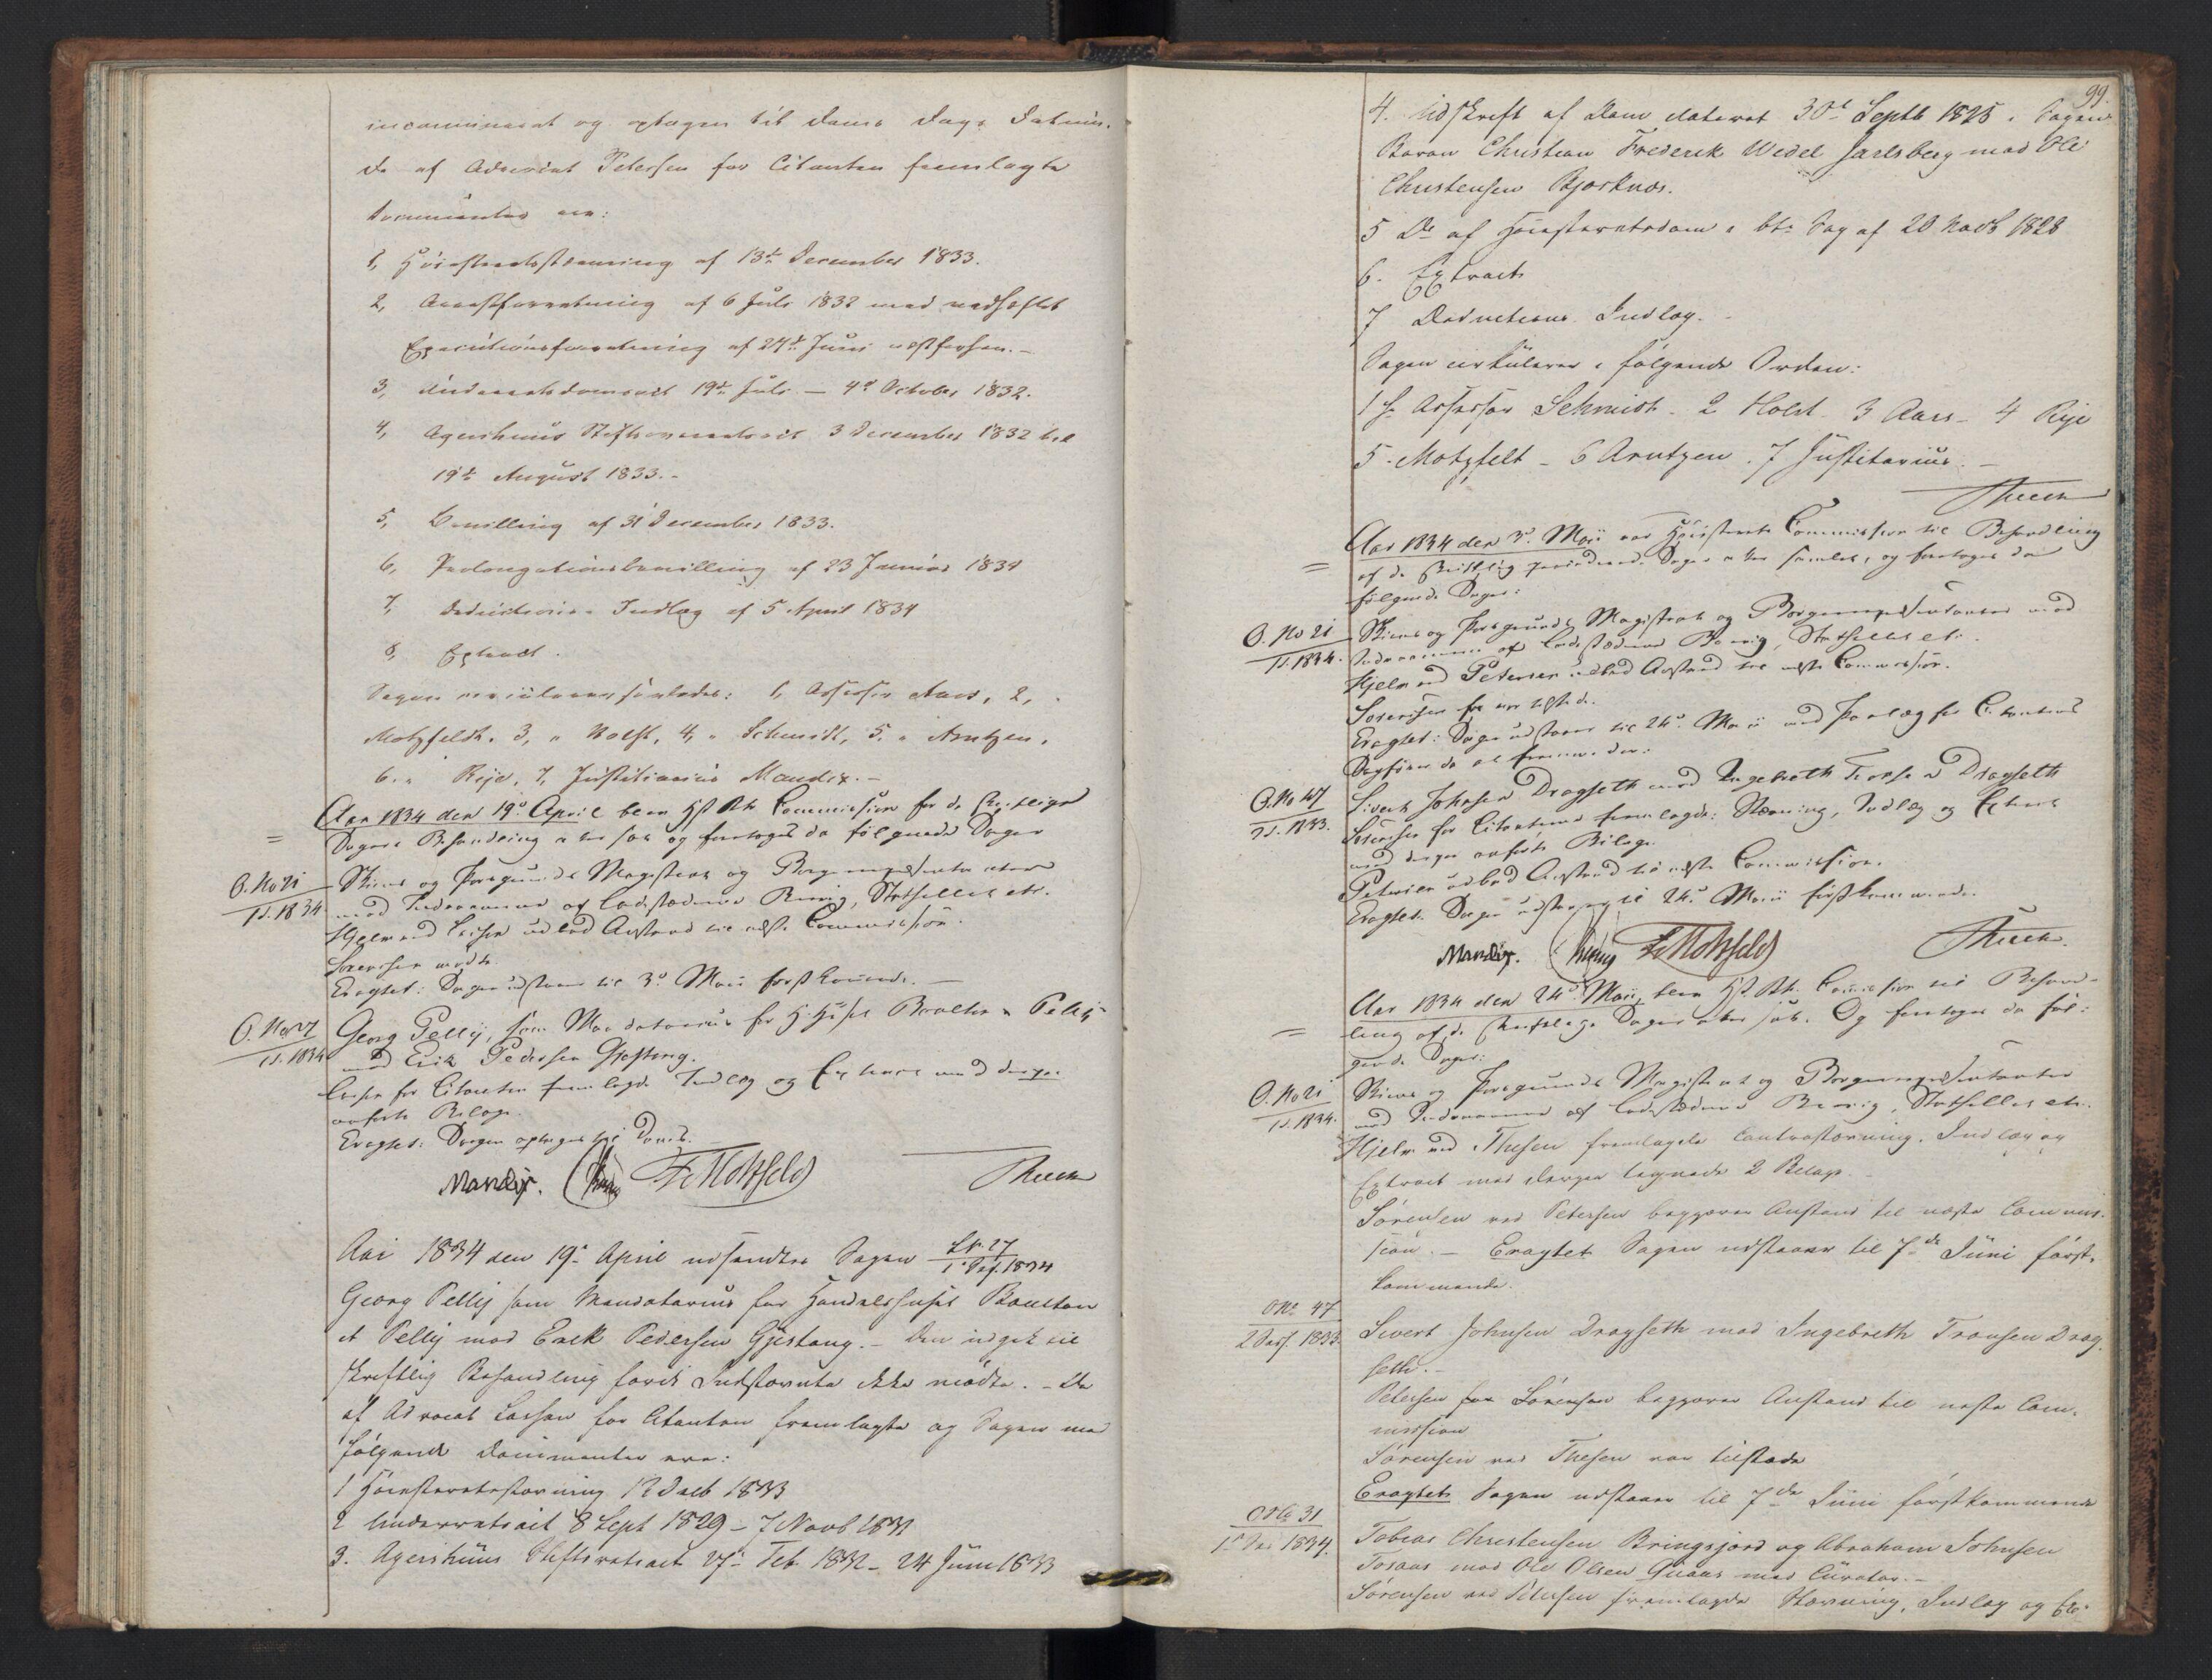 incamineret og optagen til Doms Dags Datum.
De af Advocat Petersen for Citanten fremlagte
Documenter ere:
1, Höiesteretsstævning af 13de December 1833.
2, Arrestforretning af 6 Juli 1832 med vedheftet
Executionsforretning af 24de Juni næstforhen. -
3, Underretsdomsact 19de Juli - 4de October 1832.
4, Agershuus Stiftsoverretsact 3 December 1832 til
19de August 1833. -
5, Bevilling af 31 December 1833.
6, Prolongationsbevilling af 23 Januar 1834
7, Deductions-Indlæg af 5 April 1834
8, Extract.
Sagen circulerer saaledes: 1, Assessor Aars, 2,
Motzfeldt. 3, " Holst, 4, " Schmidt, 5, " Arntzen,
6. " Rije, 7, Justitiarius Mandix. -
= Aar 1834 den 19de April blev Hst Rts Commission for de skriftlige
Sagers Behandling atter sat og foretoges da følgende Sager
O. No 21
1 S. 1834
Skiens og Porsgrunds Magistrat og Borgerrepræsentanter
mod Indvaanerne af Ladestæderne Brevig, Stathelle etc.
Hjelm ved Larsen udbad Anstand til næste Commission.
Sörensen mødte.
Eragtet: Sagen udstaaer til 3de Maii førstkomende. -
O. No 27
1 S. 1834
Georg Pellÿ, som Mandatarius for H. Huset Boulton & Pellÿ
mod Erik Pedersen Gjestang.
Larsen for Citanten fremlagde Indlæg og Extract med derpaa
anførte Bilage.
Eragtet: Sagen optages til Doms.
Mandix. F. Motzfeldt
Aar 1834 den 19de April udsendtes Sagen L No 27
1 Ses. 1834
Georg Pellÿ som Mandatarius for Handelshuset Boulton
et Pellÿ mod Erik Pedersen Gjestang. - Den indgik til
skriftlig Behandling fordi Indstævnte ikke mødte. - De
af Advocat Larsen for Citanten fremlagte og Sagen med
følgende Documenter ere:
1 Höiesteretsstævning 12 Decb 1833
2 Underretsact 8 Sept 1829 - 7 Novb 1831
3. Agershuus Stiftsretsact 27de Feb. 1832 - 24 Juni 1833
99.
4. Udskrift af Dom dateret 30te Septb 1825 i Sagen
Baron Christian Frederik Wedel Jarlsberg mod Ole
Christensen Bjorknes.
5 Do af Höiesteretsdom i bte Sag af 20 1828
6. Extract
7 Deductions Indlæg. -
Sagen cirkulerer i følgende Orden:
1 Hr Assessor Schmidt - 2 Holst - 3 Aars - 4 Rije
5. Motzfelt - 6 Arntzen. 7 Justitiarius. -
= Aar 1834 den 3de Maii var Höiesterets Commission til Behandling
af de skriftlig procederede Sager atter samlet, og foretoges da
følgende Sager:
O. No 21
1 S. 1834.
Skiens og Porsgrunds Magistrat og Borgerrepræsentanter mod
Indvaanerne af Ladestæderne Brevig, Stathelle etc.
Hjelm ved Petersen udbad Anstand til næste Commission.
Sörensen var tilstede.
Eragtet: Sagen udstaaer til 24de Maii med Paalæg for Citantens
Sagfører da at fremmøde.
O. No 47
2 S. 1833.
Sivert Johnsen Dragseth mod Ingebreth Tronsen Dragseth
Sörensen for Citanten fremlagde: Stævning, Indlæg og Extract
med derpaa anførte Bilage.
Petersen udbad Anstand til næste Commission.
Eragtet: Sagen udstaaer til 24de Maii førstkommende.
Mandix. F. Motzfeldt
= Aar 1834 den 24de Maii blev Hst. Rts. Commission til Behand-
ling af de skriftlige Sager atter sat. Og foretoges da føl-
gende Sager:
O. No 21
1 S. 1834.
Skiens og Porsgrunds Magistrat og Borgerrepræsentanter
mod Indvaanerne af Ladestæderne Brevig, Stathelle etc.
Hjelm ved Thesen fremlagde Contrastævning, Indlæg og
Extract med derpaa tegnede 2 Bilage.
Sörensen ved Petersen begjærer Anstand til næste Commis-
sion. - Eragtet Sagen udstaaer til 7de Juni først-
kommende.
O No 47
2 Sess. 1833
Sivert Johnsen Dragseth mod Ingebreth Tronsen Drag-
seth. -
Petersen for Sörensen begjærer Anstand til næste Com-
mission
Sörensen ved Thesen var tilstede
Eragtet Sagen udstaaer til 7de Juni førstkommende
O No 31
1 Ses 1834.
Tobias Christensen Bringsjord og Abraham Johnsen
Tosaas mod Ole Olsen Quaas med Curator. -
Sörensen ved Petersen fremlagde Stævning, Indlæg og Ex-